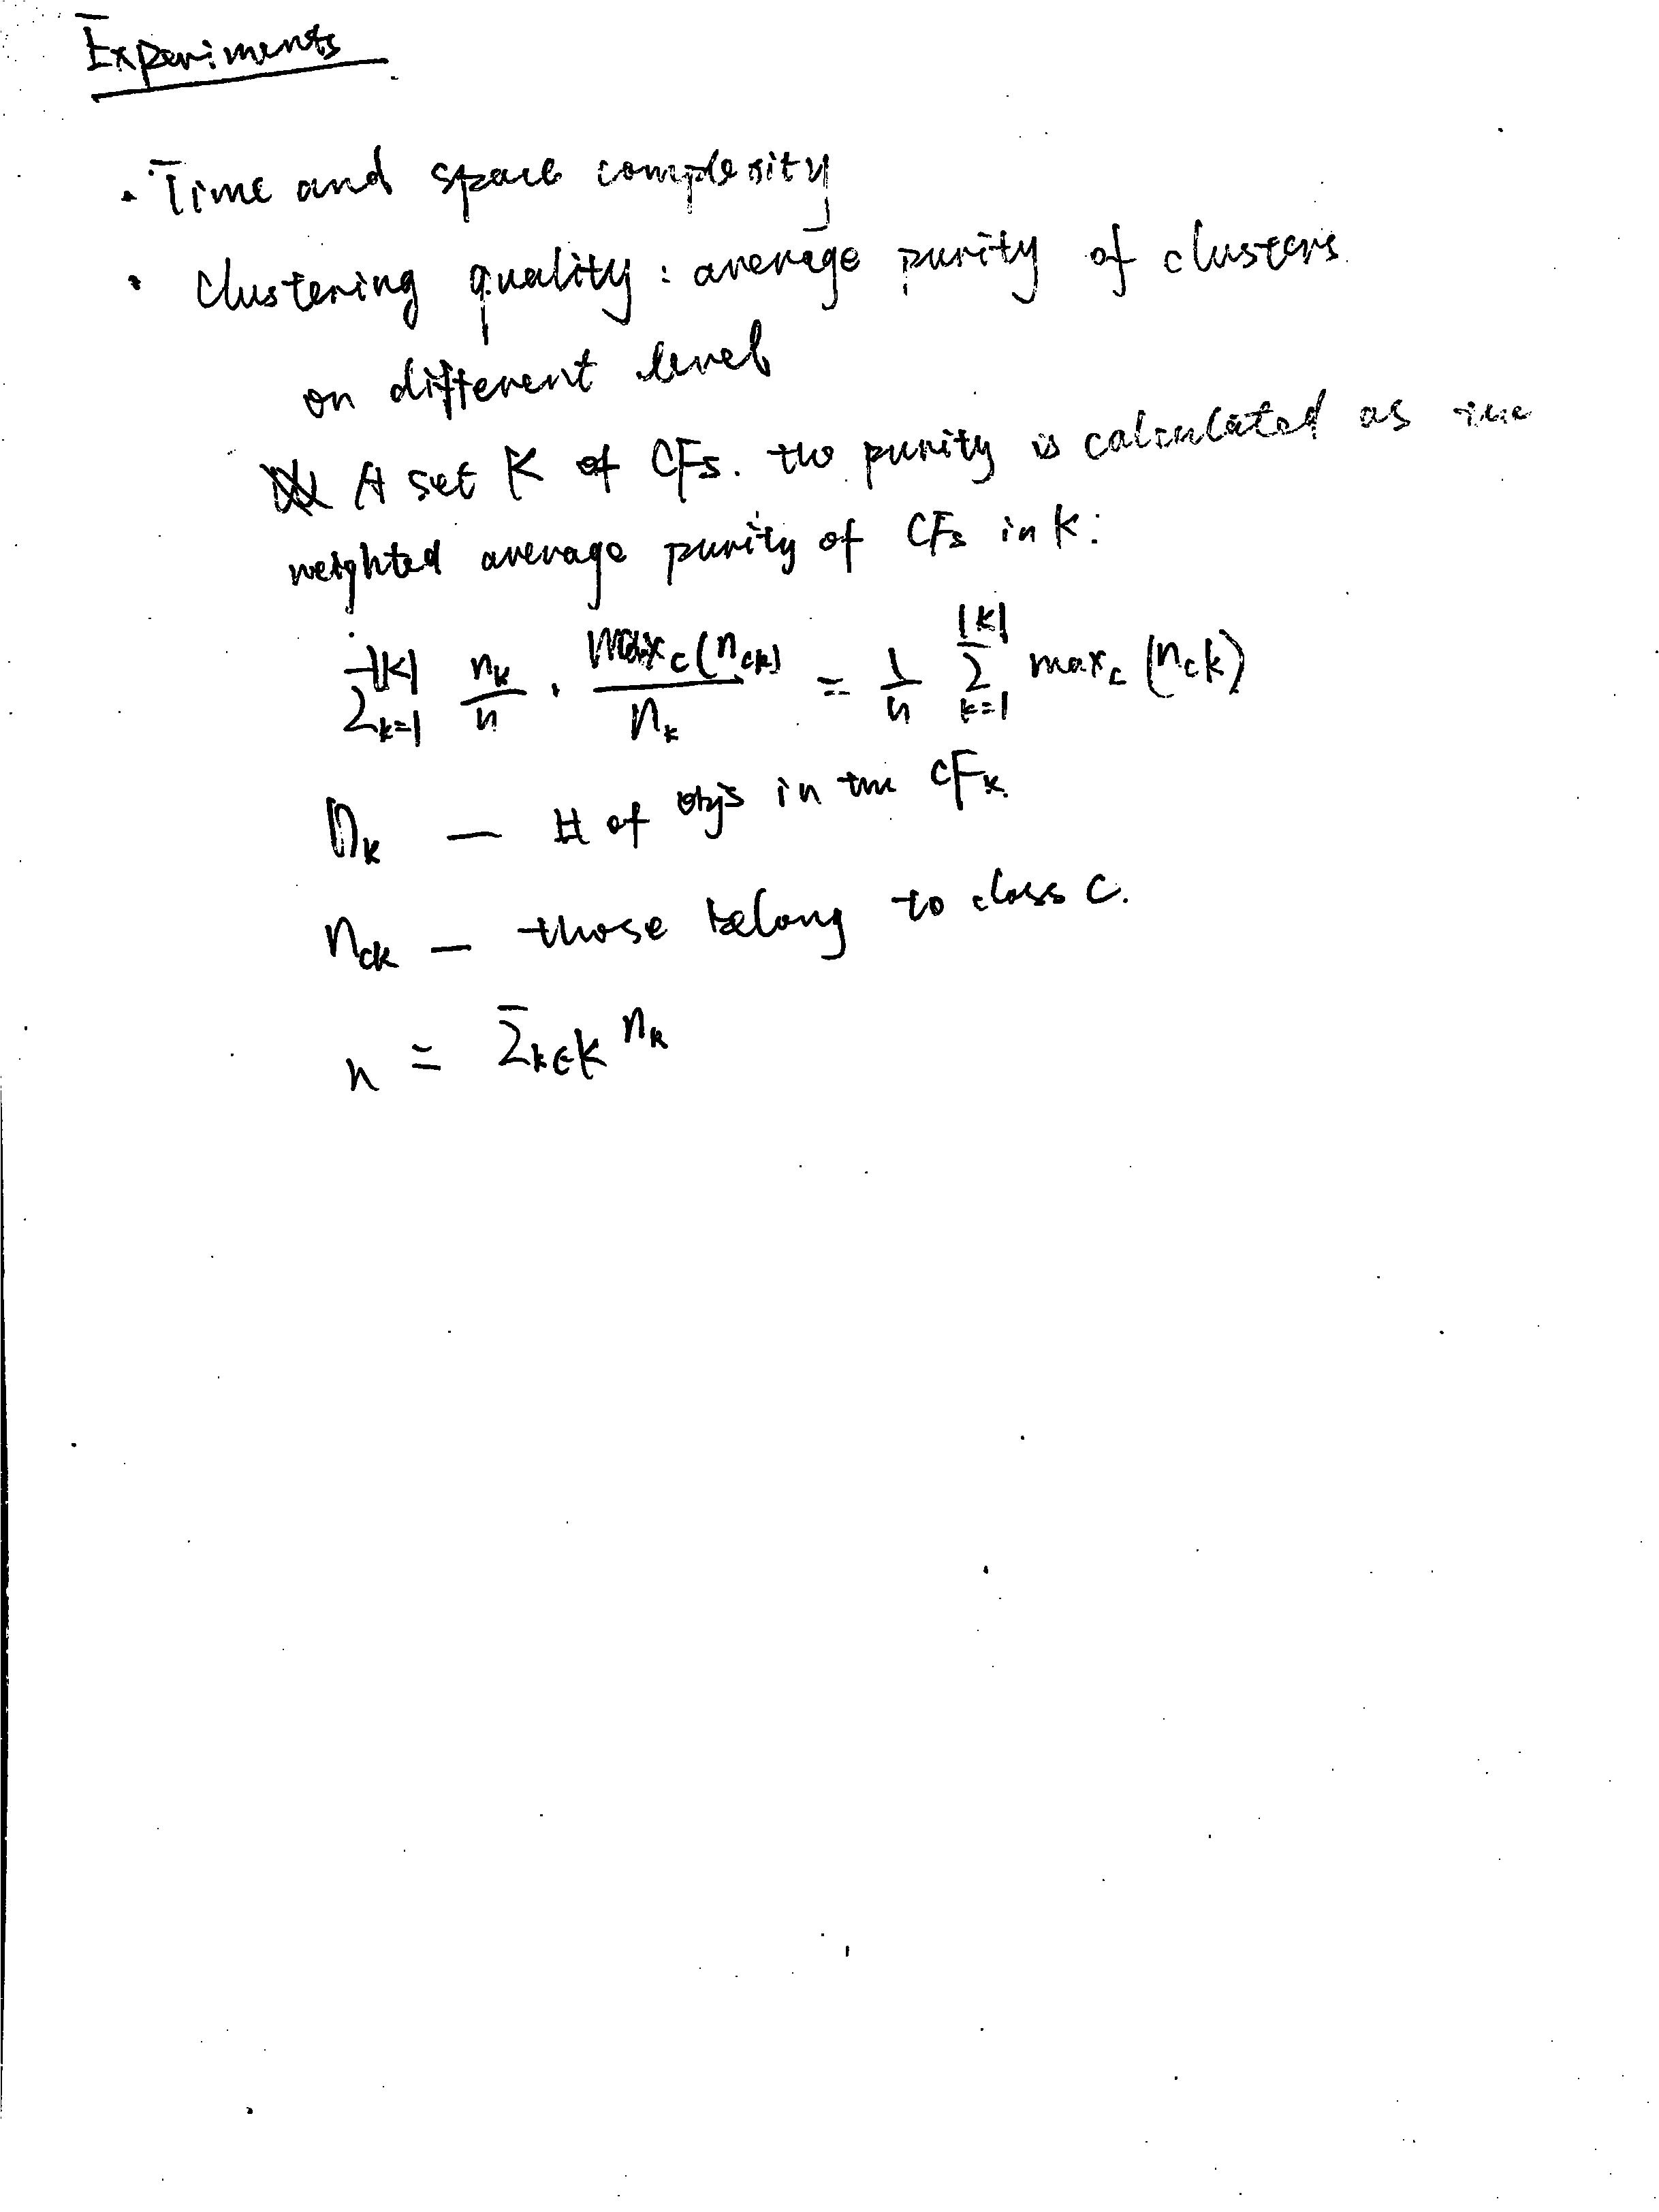 Experiments
• Time and space complexity
• Clustering quality : average purity of clusters
on different level
A set K of CFs. the purity is calculated as the
weighted average purity of CFs in K:
∑_{k=1}^{|K|} n_k/n · max_c(n_ck)/n_k = 1/n ∑_{k=1}^{|K|} max_c (n_ck)
n_k — # of objs in the CF_k.
n_ck — those belong to class C.
n = ∑_{k∈K} n_k